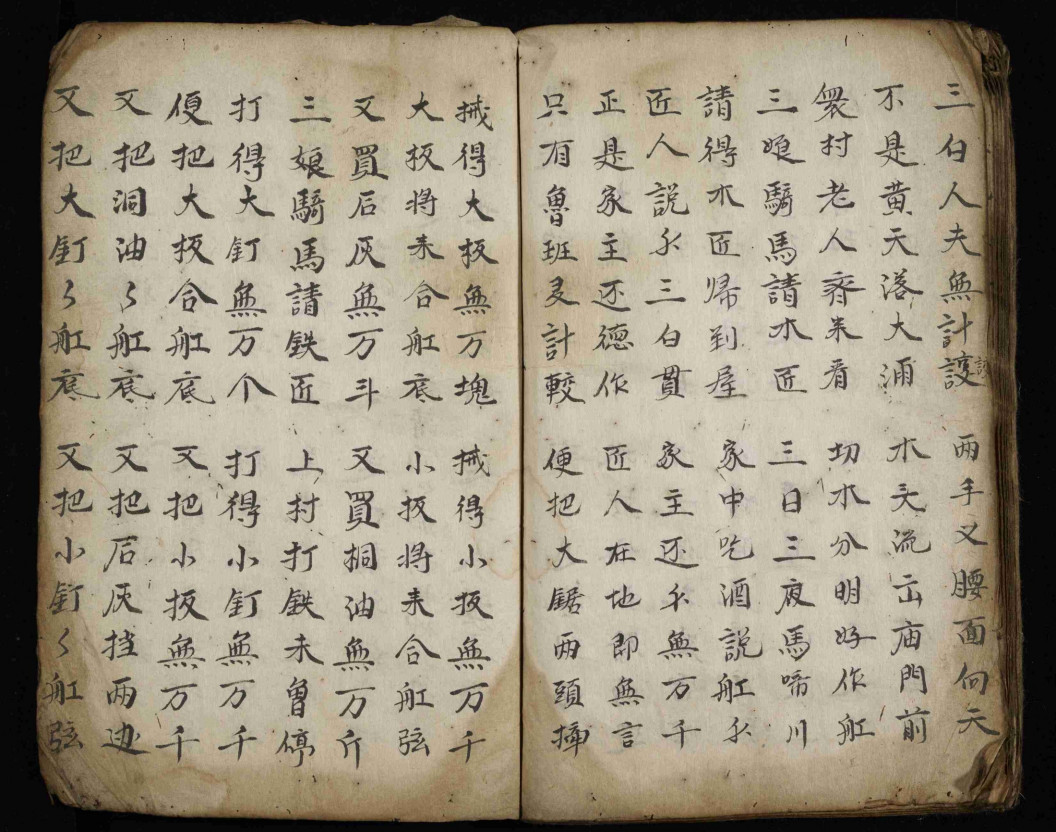 三白人夫無計設 両手叉腰面向天
不是黄天落大涌 水头流出庙門前
衆村老人齊来看 切水分明好作舡
三娘騎馬請木匠 三日三夜馬啼川
請得木匠帰到屋 家中吃酒説舡乆
匠人説乆三白貫 家主还乆無万千
正是家主还德作 匠人在地即無言
只有魯班多計較 便把大鋸両頭揷
椷得大扳無万塊 椷得小扳無万千
大扳将来合舡底 小扳将来合舡弦
又買石灰無万斗 又買桐油無万斤
三娘騎馬請鉄匠 上村打鉄未曽停
打得大釘無万个 打得小釘無万千
便把大扳合舡底 又把小扳無万千
又把洞油〻舡底 又把石灰挡両边
又把大釘〻舡底 又把小釘〻舡弦